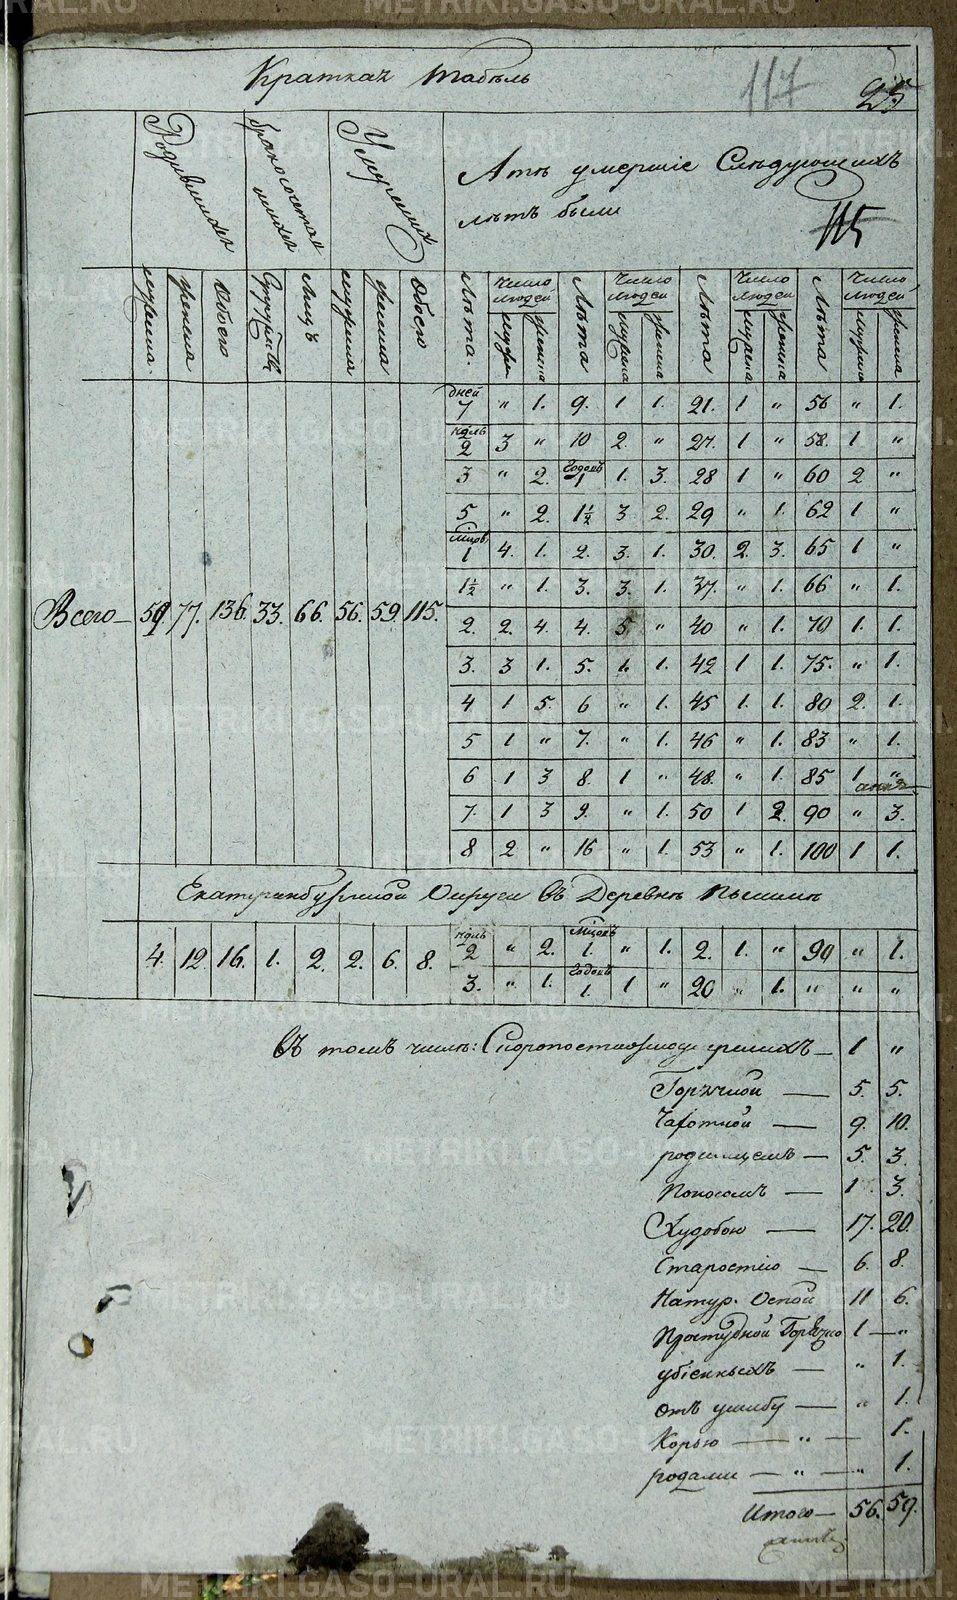 Краткая табель
117
25
Родившихся
бракосочетавшихся
Умерших
А тѣ умершіе Слѣдующихъ
лѣтъ были
115
мужеска.
женска
Обоего
Супружествъ
Лицъ
мужеска
женска
Обоего
Лѣта.
Число людей
мужес
женска
Лѣта
Число людей
мужеска
женска
Лѣта
Число людей
мужеска
женска
Лѣта
Число людей
мужеска
женска
дней 7 " 1. 9. 1 1. 21. 1 " 56 " 1.
недль 2 3 " 10 2. " 27. 1 " 58. 1 "
3 " 2. Годовъ 1 1. 3. 28 1 " 60 2 "
5 " 2. 1½ 3 2. 29 " 1. 62 1 "
мѣцов. 1 4. 1. 2. 3. 1. 30. 2. 3. 65 1 "
1½ " 1. 3. 3. 1. 37. " 1. 66 " 1.
Всего — 59 77. 136. 33. 66. 56. 59. 115. 2. 2. 4. 4. 5. " 40 " 1. 70 1. 1.
3. 3 1. 5. 1. 1. 42 1 1. 75. " 1.
4 1 5. 6 " 1. 45 1. 1. 80 2. 1.
5 1 " 7. " 1. 46 " 1. 83 " 1.
6 1 3 8. 1 " 48. " 1. 85 1 "
7. 1 3 9. " 1. 50 1 2. 90 " 3.
8 2 " 16 " 1. 53 " 1. 100 1 1.
Екатеринбургской Округи въ Деревнѣ Пышмѣ
4. 12. 16. 1. 2. 2. 6. 8. недль 2 " 2. мѣцовъ 1. " 1. 2. 1. " 90 " 1.
3. " 1. Годовъ 1. 1 " 20 " 1. " " "
въ томъ числѣ: Скоропостижно умершихъ — 1 "
Горячкой — 5. 5.
Чахоткой — 9. 10.
родимцемъ — 5. 3.
Поносомъ — 1 3.
Худобою — 17. 20.
Старостію — 6. 8.
Натур. Оспой 11 6.
Простудной Горячко 1 — "
убіенныхъ — " 1.
отъ ушибу — " 1.
Корью — " — 1.
родами — " — " 1.
Итого — 56. 59.